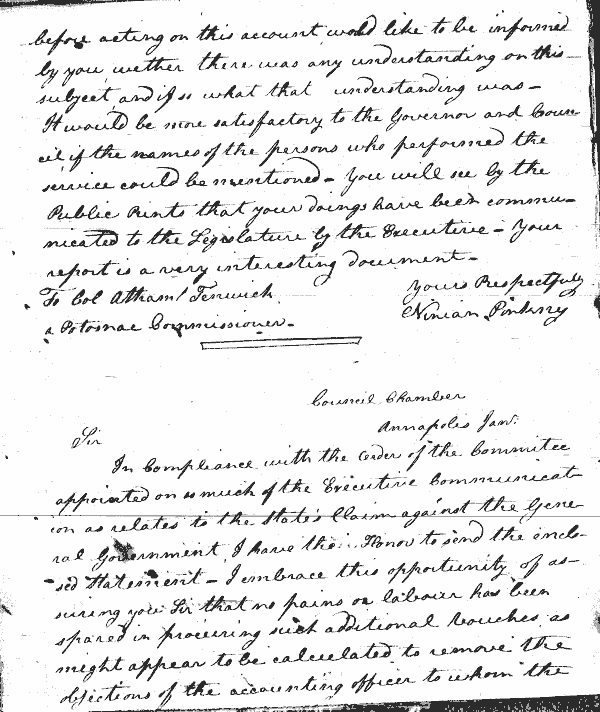 before acting on this account would like to be informed
by you wether there was any understanding on this
subject, and if so what that understanding was –
It would be more satisfactory to the Governor and Coun-
cil if the names of the persons who performed the
service could be mentioned – You will see by the
Public Prints that your doings have been commu-
nicated to the Legislature by the Executive – Your
report is a very interesting document –
To Col Athan.l Fenwick
Yours Respectfully
a Potomac Commissioner –
Ninian Pinkney
Council Chamber
Annapolis Jan.
Sir
In Compliance with the order of the Committee
appointed on so much of the Executive Communicat-
ion as relates to the State's Claim against the Gene-
ral Government, I have the Honor to send the enclo-
sed Statement – I embrace this opportunity of as-
suring you Sir that no pains or labour has been
spared in procuring such additional vouches as
might appear to be calculated to remove the
objections of the accounting officer to whom the